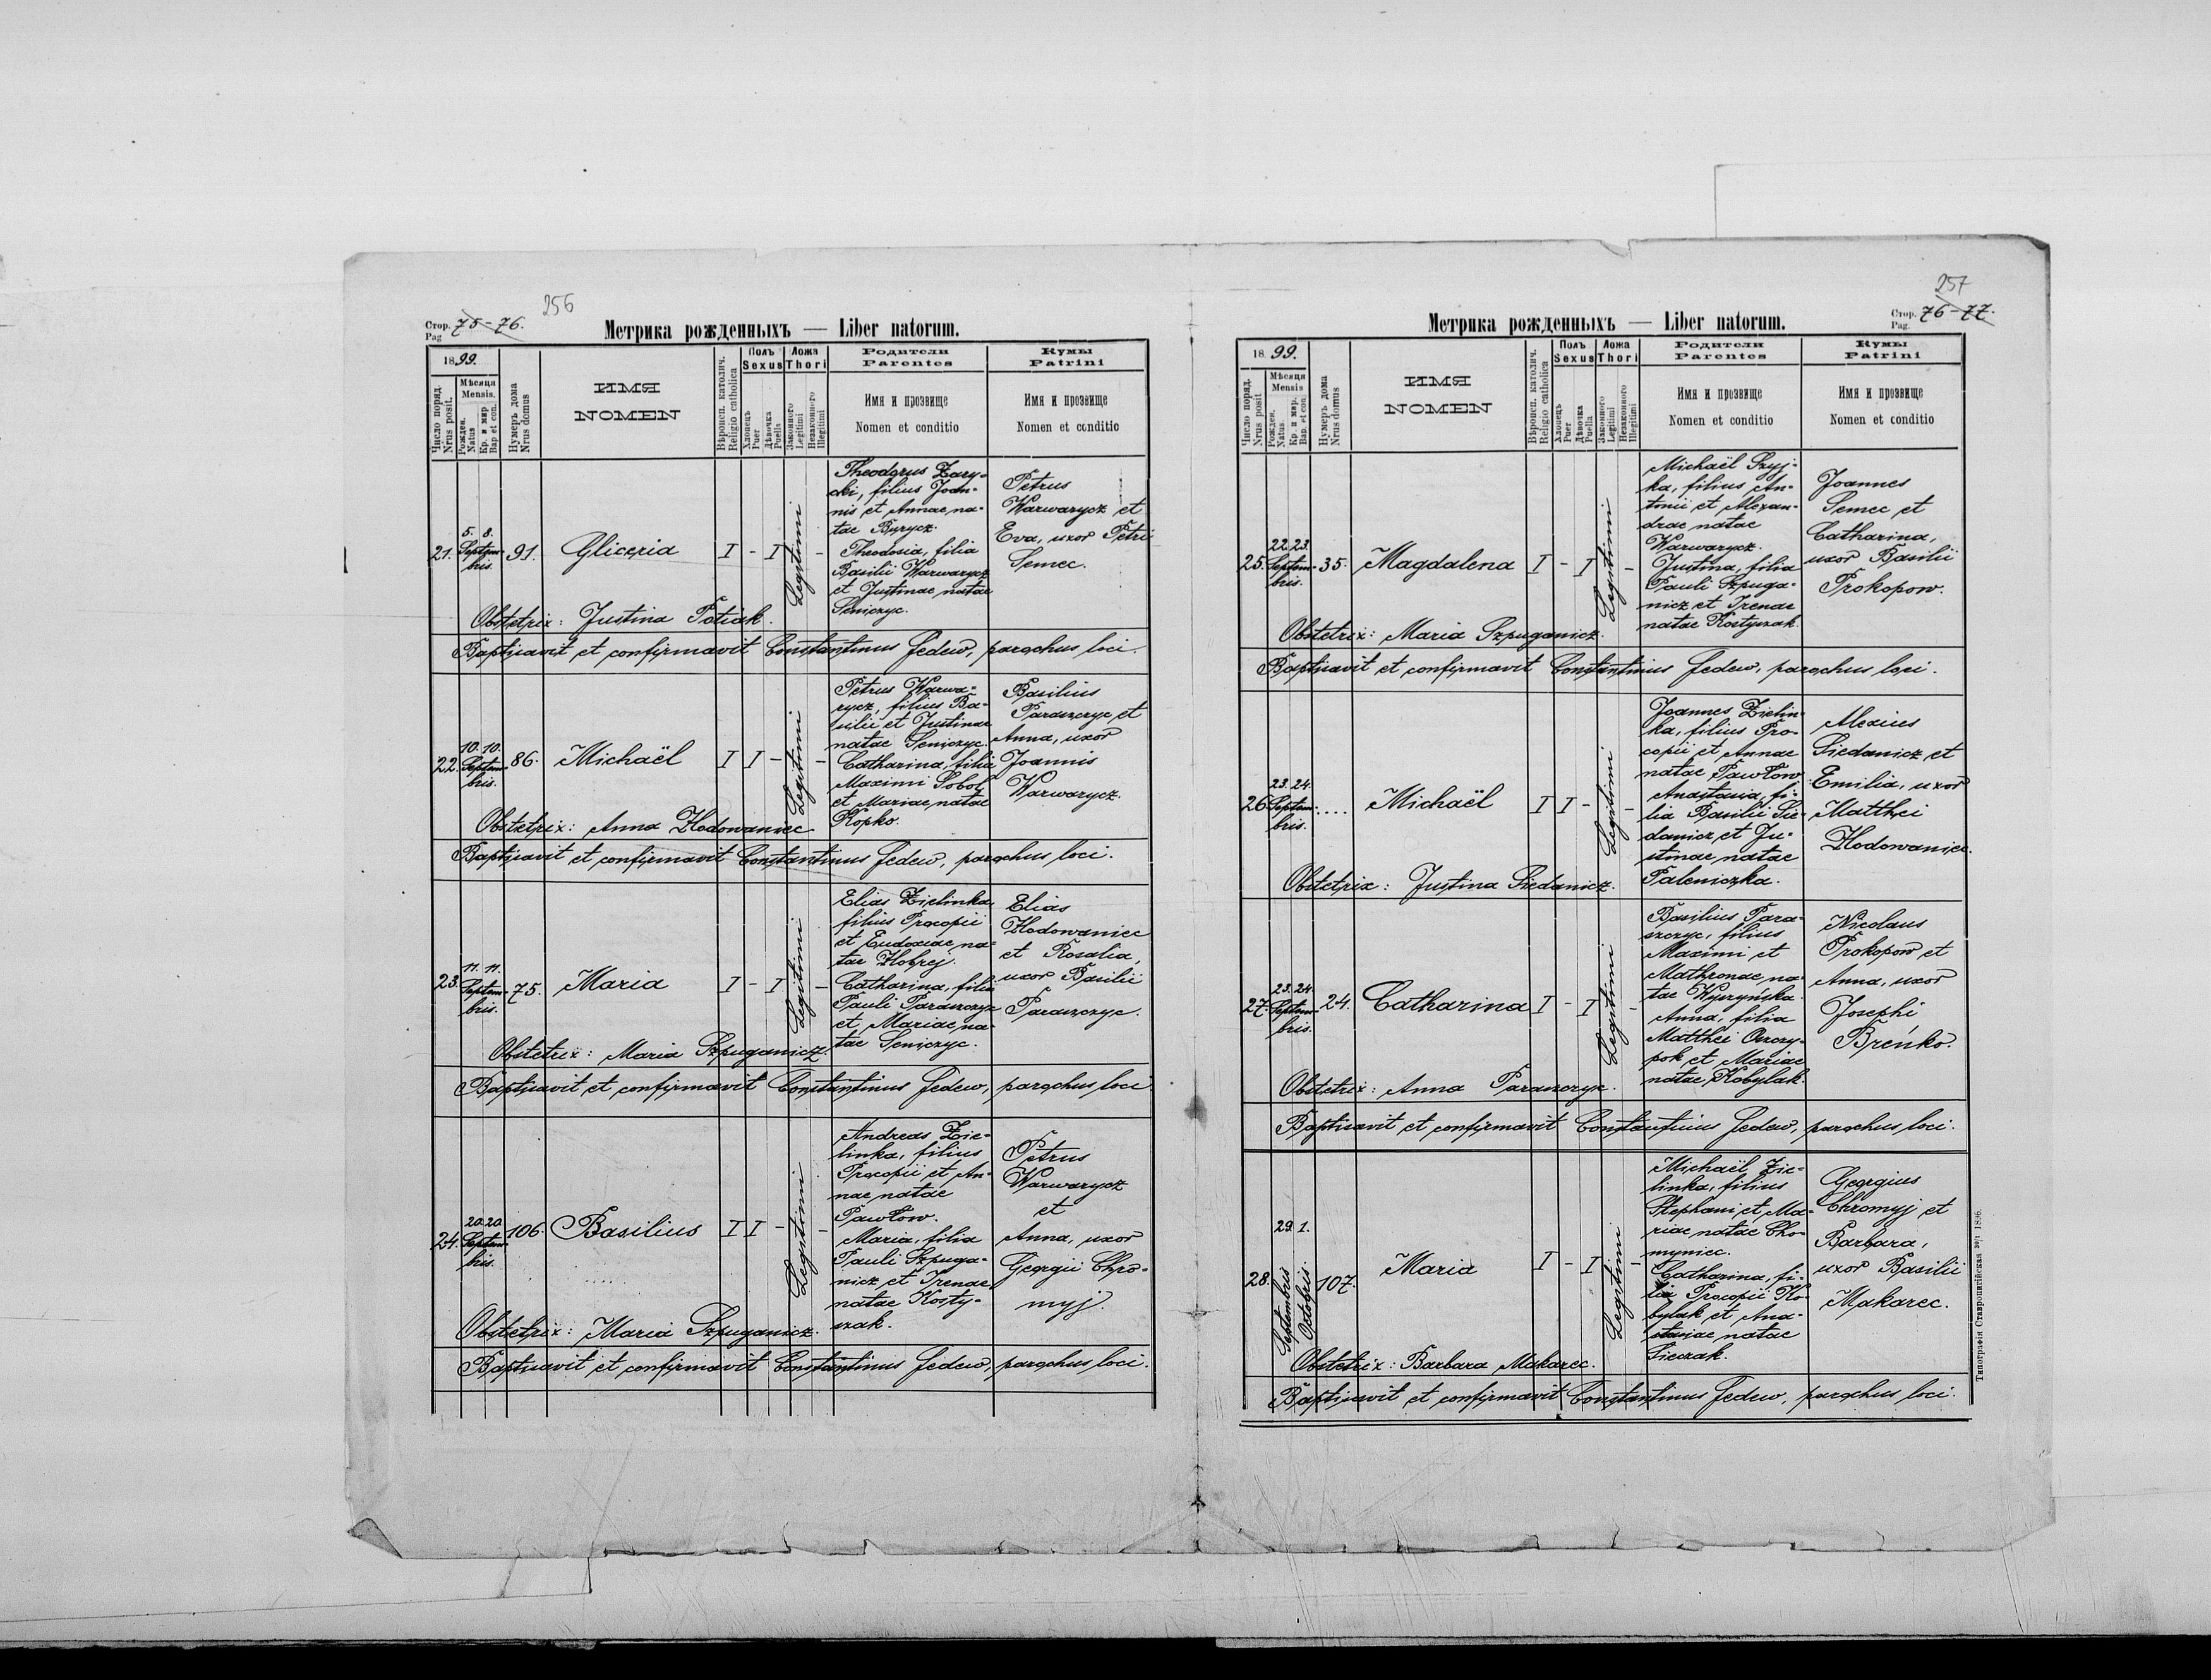 256
Стор. 75-76.
Pag
Метрика рожденныхъ — Liber natorum.
1899.
Число поряд.
Nrus posit.
Мѣсяця
Mensis.
Рожден.
Natus
Кр. и мир.
Bap. et con.
Нумеръ дома
Nrus domus
ИМЯ
NOMEN
Вѣроисп. католич.
Religio catholica
Полъ
Sexus
Хлопецъ
Puer
Дѣвочка
Puella
Ложа
Thori
Законного
Legitimi
Незаконного
Illegitimi
Родители
Parentes
Имя и прозвище
Nomen et conditio
Кумы
Patrini
Имя и прозвище
Nomen et conditio
21.
5. 8.
Septem-
bris.
91.
Gliceria
I - I
Legitimi
-
Theodorus Zary-
cki, filius Joan-
nis et Annae na-
tae Byrycz.
Theodosia, filia
Basilii Warwarycz
et Justinae natae
Seniczyc.
Petrus
Warwarycz et
Eva, uxor Petri
Semec.
Obstetrix: Justina Patiak.
Baptisavit et confirmavit Constantinus Fedew, parochus loci.
22.
10. 10.
Septem-
bris.
86.
Michaël
I I -
Legitimi
-
Petrus Warwa-
rycz, filius Ba-
silii et Justinae
natae Seniczyc.
Catharina, filia
Maximi Sobol
et Mariae natae
Kopko.
Basilius
Paraszczyc et
Anna, uxor
Joannis
Warwarycz.
Obstetrix: Anna Hodowaniec
Baptisavit et confirmavit Constantinus Fedew, parochus loci.
23.
11. 11.
Septem-
bris.
75.
Maria
I - I
Legitimi
-
Elias Zielinka
filius Procopii
et Eudoxiae na-
tae
Catharina, filia
Pauli Paraszczyc
et Mariae na-
tae Seniczyc.
Elias
Hodowaniec
et Rosalia,
uxor Basilii
Paraszczyc.
Obstetrix: Maria Szpuganicz.
Baptisavit et confirmavit Constantinus Fedew, parochus loci
24.
20. 20.
Septem-
bris.
106.
Basilius
I I -
Legitimi
-
Andreas Zie-
linka, filius
Procopii et An-
nae natae
Pawłow.
Maria, filia
Pauli Szpuga-
nicz, et Irenae
natae Kosty-
szak.
Petrus
Warwarycz
et
Anna, uxor
Georgii Chro-
myj.
Obstetrix: Maria Szpuganicz.
Baptisavit et confirmavit Constantinus Fedew, parochus loci.
257
Стор. 76-77.
Pag.
Метрика рожденныхъ — Liber natorum.
1899.
Число поряд.
Nrus posit
Мѣсяця
Mensis
Рожден.
Natus.
Кр. и мир.
Bap. et con
Нумеръ дома
Nrus domus
ИМЯ
NOMEN
Вѣроисп. католич.
Religio catholica
Полъ
Sexus
Хлопецъ
Puer
Дѣвочка
Puella
Ложа
Thori
Законного
Legitimi
Незаконного
Illegitimi
Родители
Parentes
Имя и прозвище
Nomen et conditio
Кумы
Patrini
Имя и прозвище
Nomen et conditio
25.
22. 23.
Septem-
bris.
35.
Magdalena
I - I
Legitimi
-
Michaël Szyj-
ka, filius An-
tonii et Alexan-
drae natae
Warwarycz.
Justina, filia
Pauli Szpuga-
nicz et Irenae
natae Kostyszak.
Joannes
Semec et
Catharina,
uxor Basilii
Prokopow.
Obstetrix: Maria Szpuganicz.
Baptisavit et confirmavit Constantinus Fedew, parochus loci.
26.
23. 24.
Septem-
bris.
....
Michaël
I I -
Legitimi
-
Joannes Zielin-
ka, filius Pro-
copii et Annae
natae Pawłow
Anastasia, fi-
lia Basilii Sie-
danicz et Ju-
stinae natae
Paleniczka.
Alexius
Siedanicz et
Emilia, uxor
Matthei
Hodowaniec.
Obstetrix: Justina Siedanicz.
27.
23. 24
Septem-
bris.
24.
Catharina
I - I
Legitimi
-
Basilius Para-
szczyc, filius
Maximi et
Mathronae na-
tae Wyszyńska.
Anna, filia
Matthei Oszczy-
pok et Mariae
natae Kobylak.
Nicolaus
Prokopow et
Anna, uxor
Josephi
Breńko.
Obstetrix: Anna Paraszczyc.
Baptisavit et confirmavit Constantinus Fedew, parochus loci.
28.
29. 1.
Septembris
Octobris.
107.
Maria
I - I
Legitimi
-
Michaël Zie-
linka, filius
Stephani et Ma-
riae natae Cho-
myniec.
Catharina, fi-
lia Procopii Ko-
bylak et Ana-
stasiae natae
Sieczak.
Georgius
Chromyj et
Barbara,
uxor Basilii
Makarec.
Obstetrix: Barbara Makarec.
Baptisavit et confirmavit Constantinus Fedew, parochus loci.
Типографія Ставропигійска 30/1 1896.